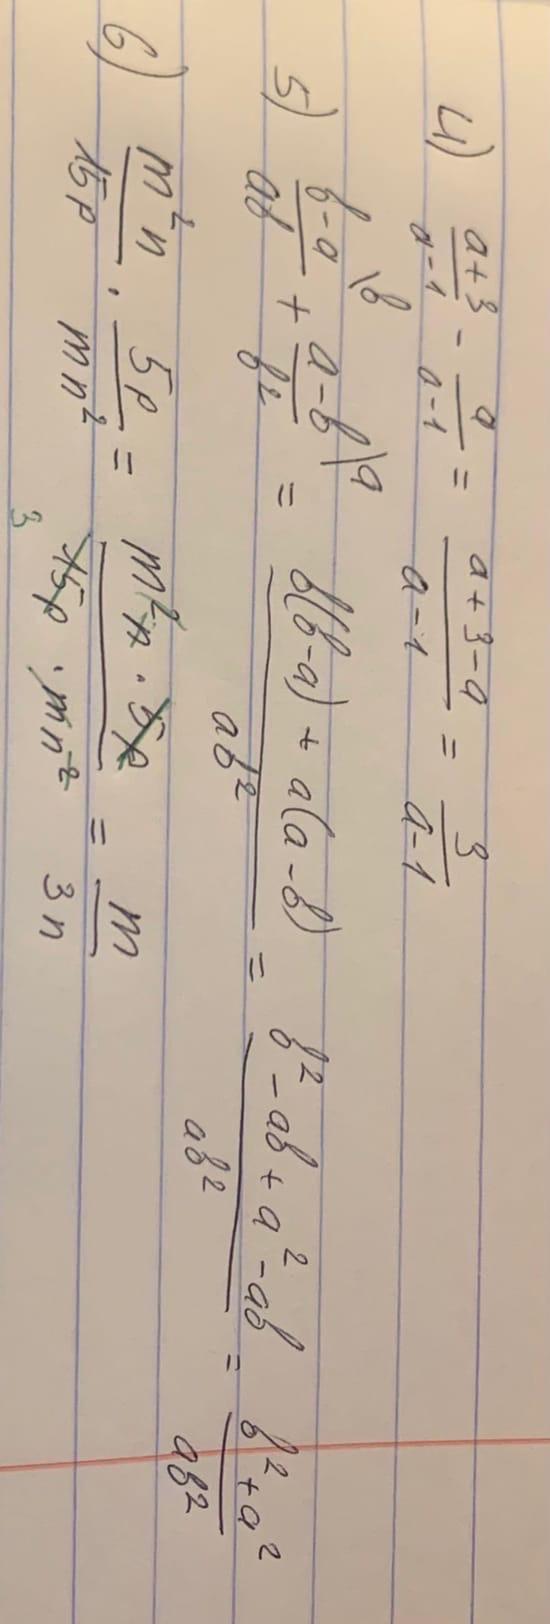 4) \frac{a+3}{a-1} - \frac{a}{a-1} = \frac{a+3-a}{a-1} = \frac{3}{a-1}
5) \frac{b-a}{ab}^{\backslash b} + \frac{a-b}{b^2}^{\backslash a} = \frac{b(b-a)+a(a-b)}{ab^2} = \frac{b^2-ab+a^2-ab}{ab^2} = \frac{b^2+a^2}{ab^2}
6) \frac{m^2n}{15p} \cdot \frac{5p}{mn^2} = \frac{m^2n \cdot 5p}{15p \cdot mn^2} = \frac{m}{3n}
3